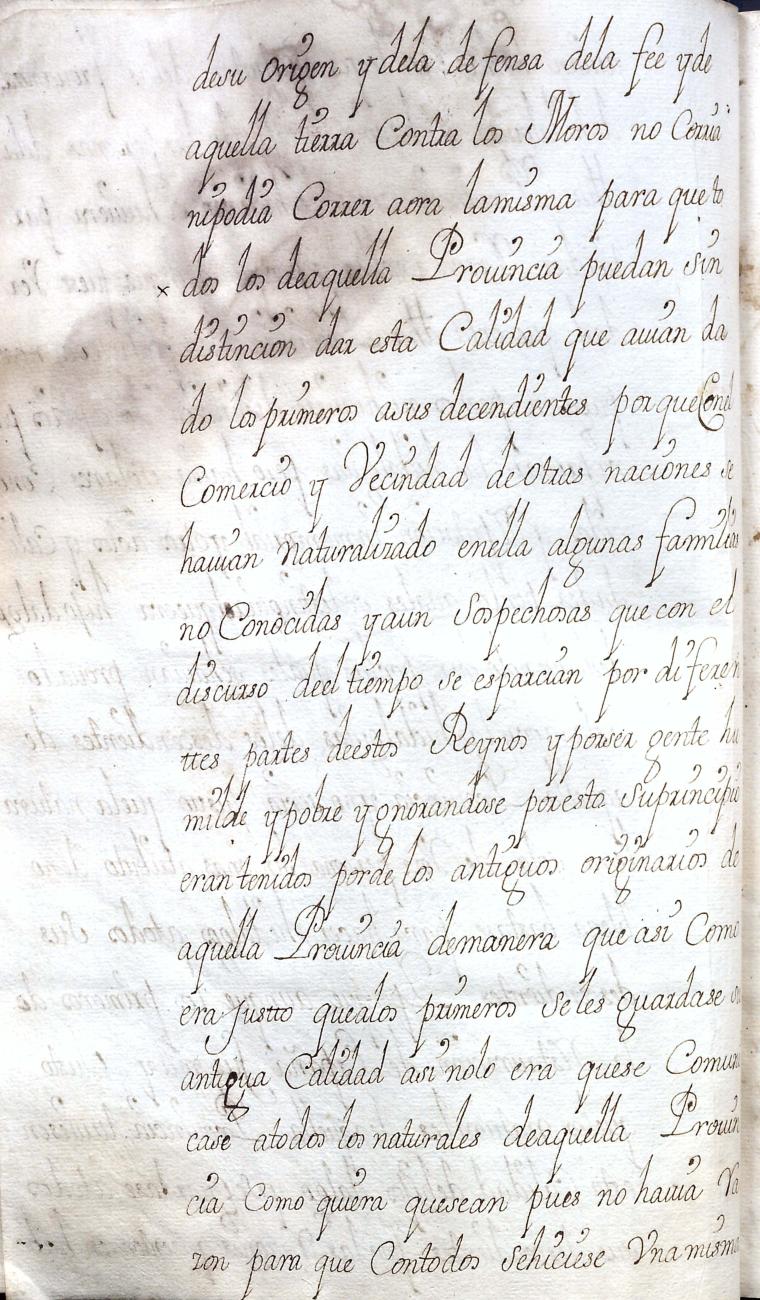 desu origen y dela defensa dela fee y de
aquella tierra Contra los Moros no Corria
nipodia Correr aora lamisma para que to
x dos los deaquella Prouincia puedan sin
distincion dar esta Calidad que auian da
do los primeros asus decendientes porque Con el
Comercio y Vecindad de otras naciones se
hauian naturalizado enella algunas familias
no Conocidas y aun Sospechosas que con el
discurso deel tiempo se esparcian por diferen
ttes partes deestos Reynos y porser gente hu
milde y pobre y gnorandose poresto Suprincipio
eran tenidos porde los antiguos originarios de
aquella Prouincia demanera que asi Como
era Justto quealos primeros se les guardase su
antigua Calidad asi nolo era quese Comuni
case atodos los naturales deaquella Prouin
cia Como quiera quesean pues no hauia Ra
zon para que Contodos Sehiciese Vna misma